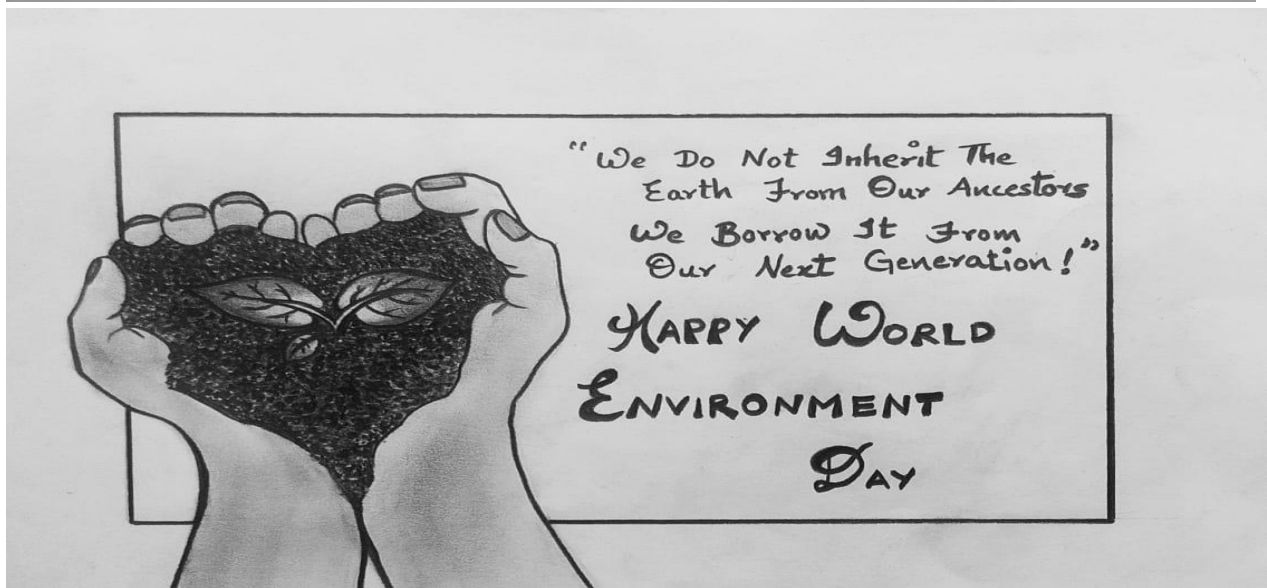 “We Do Not Inherit The
Earth From Our Ancestors
We Borrow It From
Our Next Generation!”
HAPPY WORLD
ENVIRONMENT
DAY